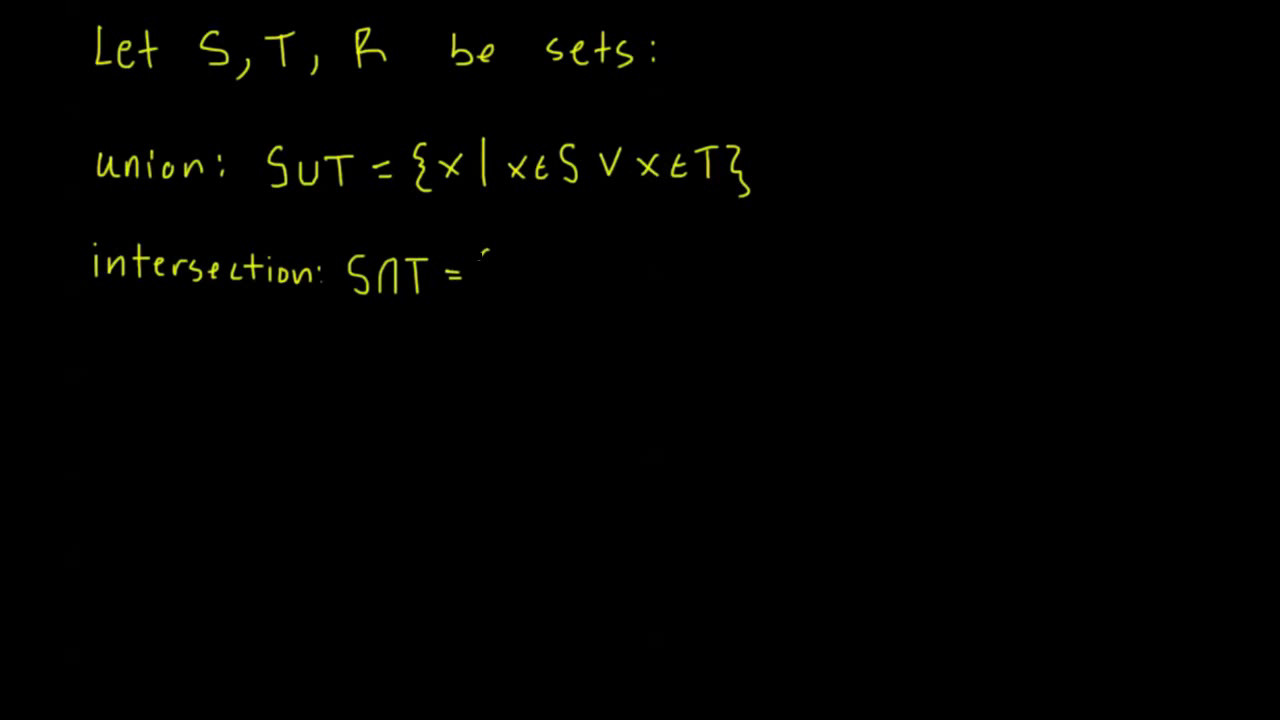 Let S, T, R be sets:
union: S∪T = {x | x∈S ∨ x∈T}
intersection: S∩T =